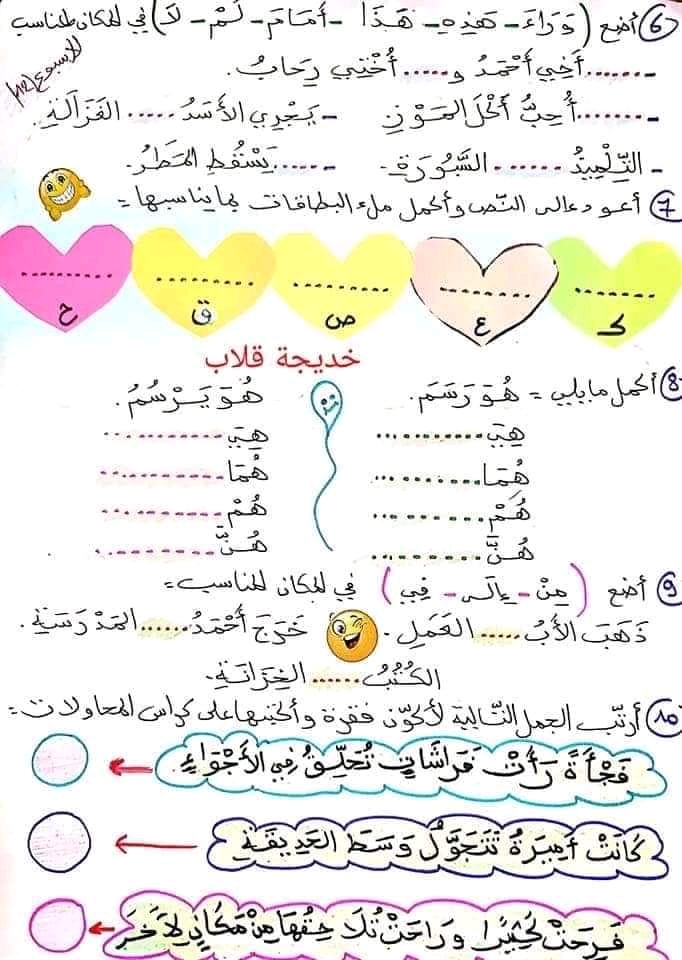 6 أضع (وَرَاءَ - هَذِهِ - هَذَا - أَمَامَ - لَمْ - لَا) في المكان المناسب
الأسبوع
- ...... أَخِي أَحْمَدُ و ..... أُخْتِي رِحَابُ.
- ....... أُحِبُّ أَكْلَ المَوْزِ - يَجْرِي الأَسَدُ ..... الغَزَالَةِ.
- التِّلْمِيذُ ...... السَّبُّورَةِ. - ..... يَسْقُطِ المَطَرُ.
7 أعود إلى النّص وأكمل ملء البطاقات بما يناسبها =
ك ع ص ق ح
خديجة قلاب
8 أكمل مايلي = هُوَ رَسَمَ. هُوَ يَرْسُمُ.
هِيَ ........... هِيَ ...........
هُمَا ........... هُمَا ...........
هُمْ ........... هُمْ ...........
هُنَّ ........... هُنَّ ...........
9 أضع (مِنْ - إِلَى - فِي) في المكان المناسب =
ذَهَبَ الأَبُ ..... العَمَلِ. خَرَجَ أَحْمَدُ ...... المَدْرَسَةِ.
الكُتُبُ ...... الخِزَانَةِ.
10 أرتّب الجمل التّالية لأكوّن فقرة وأكتبها على كراس المحاولات =
فَجْأَةً رَأَتْ فَرَاشَاتٍ تُحَلِّقُ فِي الأَجْوَاءِ.
كَانَتْ أَمِيرَةُ تَتَجَوَّلُ وَسَطَ الحَدِيقَةِ
فَرِحَتْ كَثِيرًا وَرَاحَتْ تُلَاحِقُهَا مِنْ مَكَانٍ لِآخَرَ